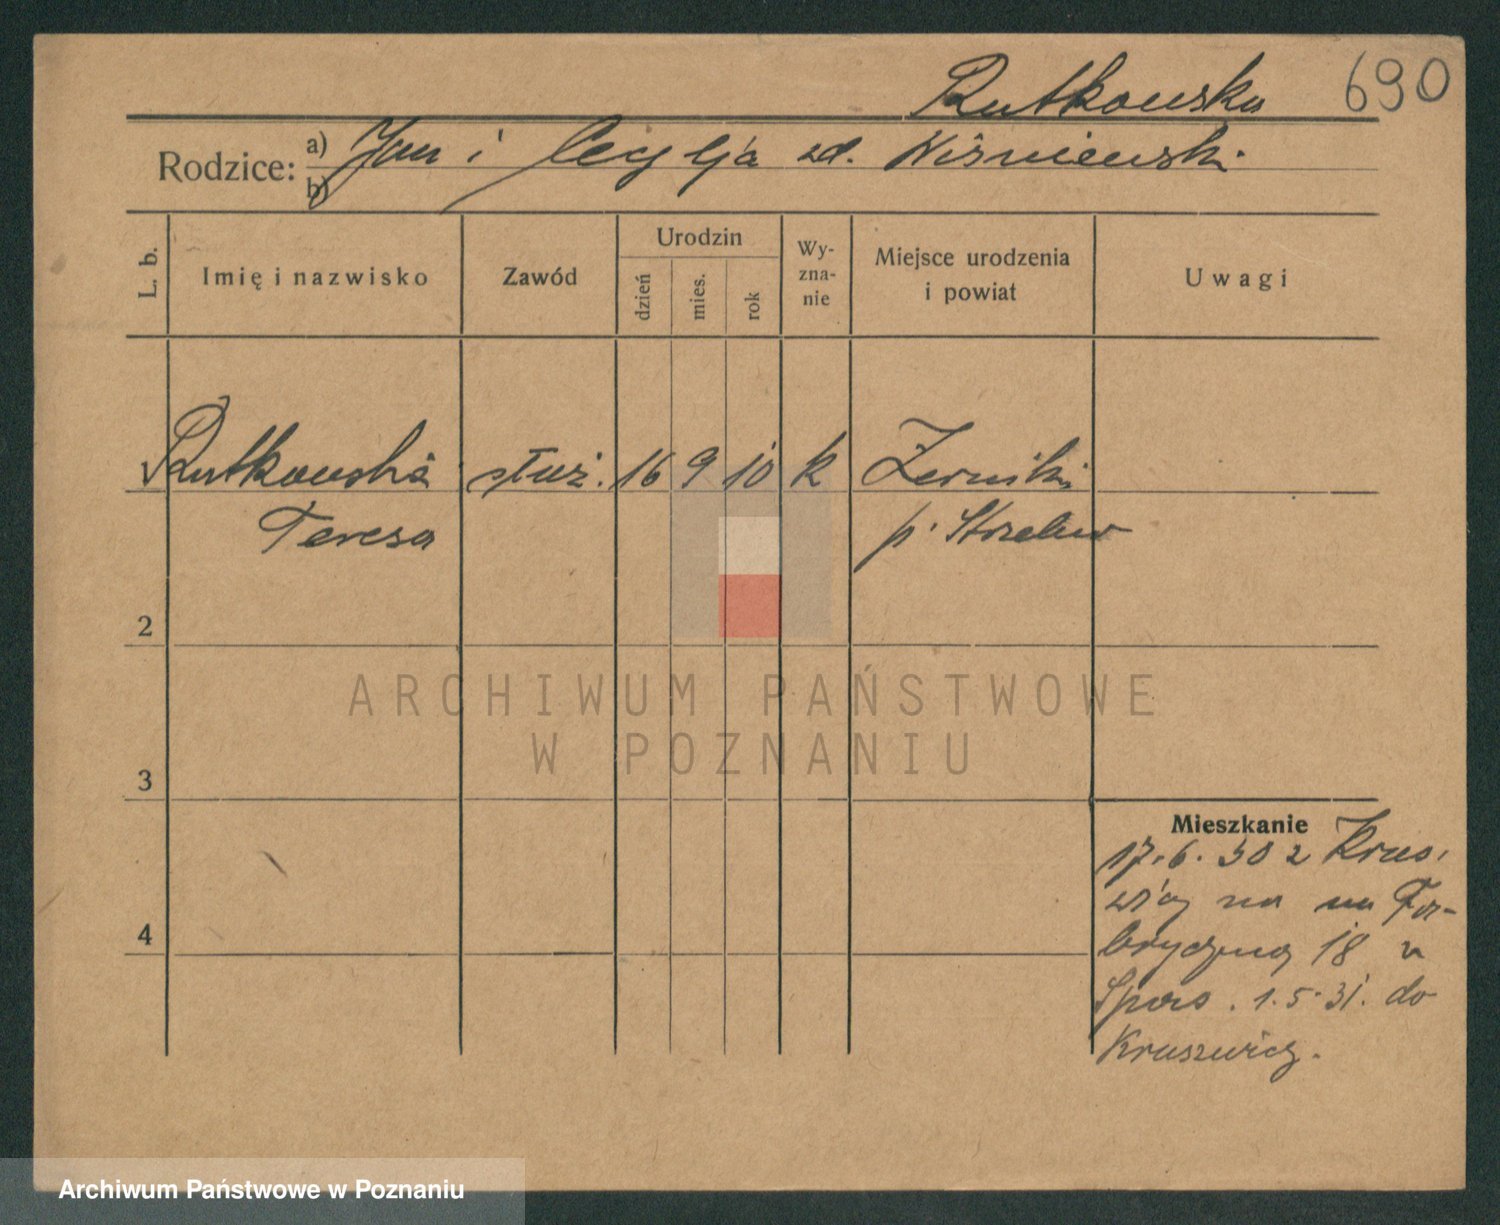 Rutkowska 690
Rodzice: a) Jan i Cecylja zd. Wiśniewski.
b)
L. b. Imię i nazwisko Zawód Urodzin dzień mies. rok Wy-zna-nie Miejsce urodzenia i powiat Uwagi
Rutkowska służ. 16 9 10 k Żerniki
Teresa p. Strzelno
2
ARCHIWUM PAŃSTWOWE
W POZNANIU
3
Mieszkanie
17.6.30 z Krus.
na Fa-
bryczną 18 u
1.5.31. do
4
Kruszwicy.
Archiwum Państwowe w Poznaniu